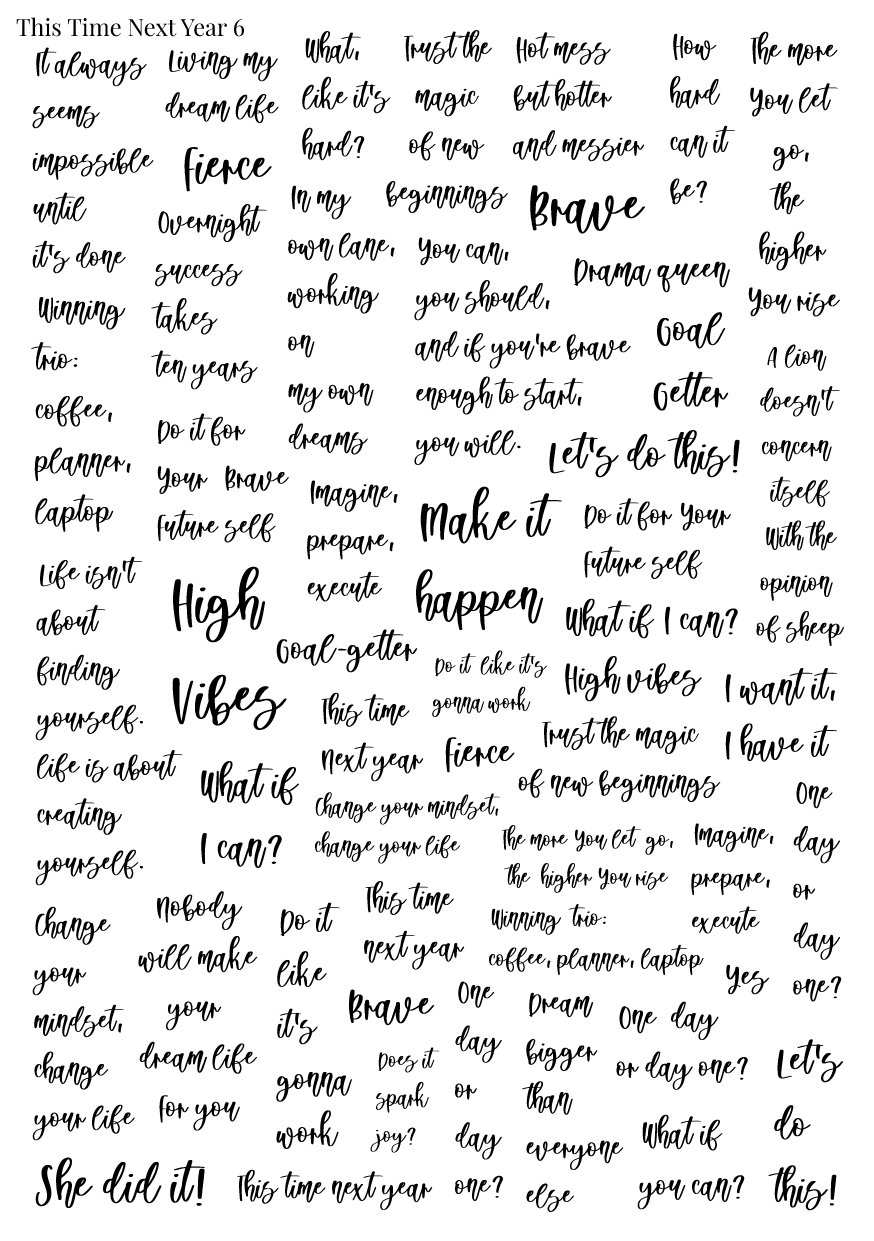 This Time Next Year 6
It always
seems
impossible
until
it's done
Winning
trio:
coffee,
planner,
laptop
Life isn't
about
finding
yourself.
life is about
creating
yourself.
Change
your
mindset,
change
your life
She did it!
Living my
dream life
Fierce
Overnight
success
takes
ten years
Do it for
Your Brave
future self
High
Vibes
What if
I can?
Nobody
will make
your
dream life
for you
What,
like it's
hard?
In my
own lane,
working
on
my own
dreams
Imagine,
prepare,
execute
Goal-getter
This time
next year
Change your mindset,
change your life
Do it
like
it's
gonna
work
This time
next year
Brave
Does it
spark
joy?
This time next year
Trust the
magic
of new
beginnings
You can,
you should,
and if you're brave
enough to start,
you will.
Make it
happen
Do it like it's
gonna work
Fierce
Hot mess
but hotter
and messier
Brave
Drama queen
Goal
Getter
Let's do this!
Do it for Your
future self
What if I can?
High vibes
Trust the magic
of new beginnings
The more You let go,
the higher You rise
Winning trio:
coffee, planner, laptop
One
day
or
day
one?
Dream
bigger
than
everyone
else
One day
or day one?
What if
you can?
How
hard
can it
be?
The more
You let
go,
the
higher
You rise
A lion
doesn't
concern
itself
With the
opinion
of sheep
I want it,
I have it
Imagine,
prepare,
execute
One
day
or
day
one?
Yes
Let's
do
this!